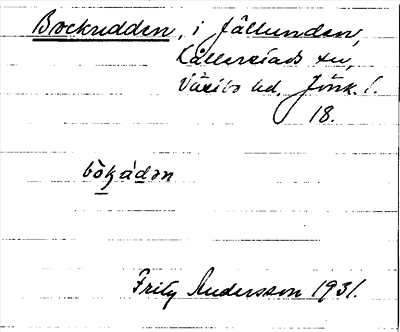 Bockudden, i Fällunden,
Källerstads sn,
Västbo hd, Jönk. l.
18.
Fritz Andersson 1931.